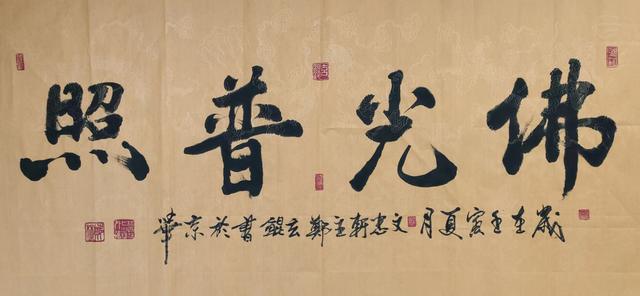 佛光普照
歲在壬寅夏月文忠軒主鄭玄錕書於京華